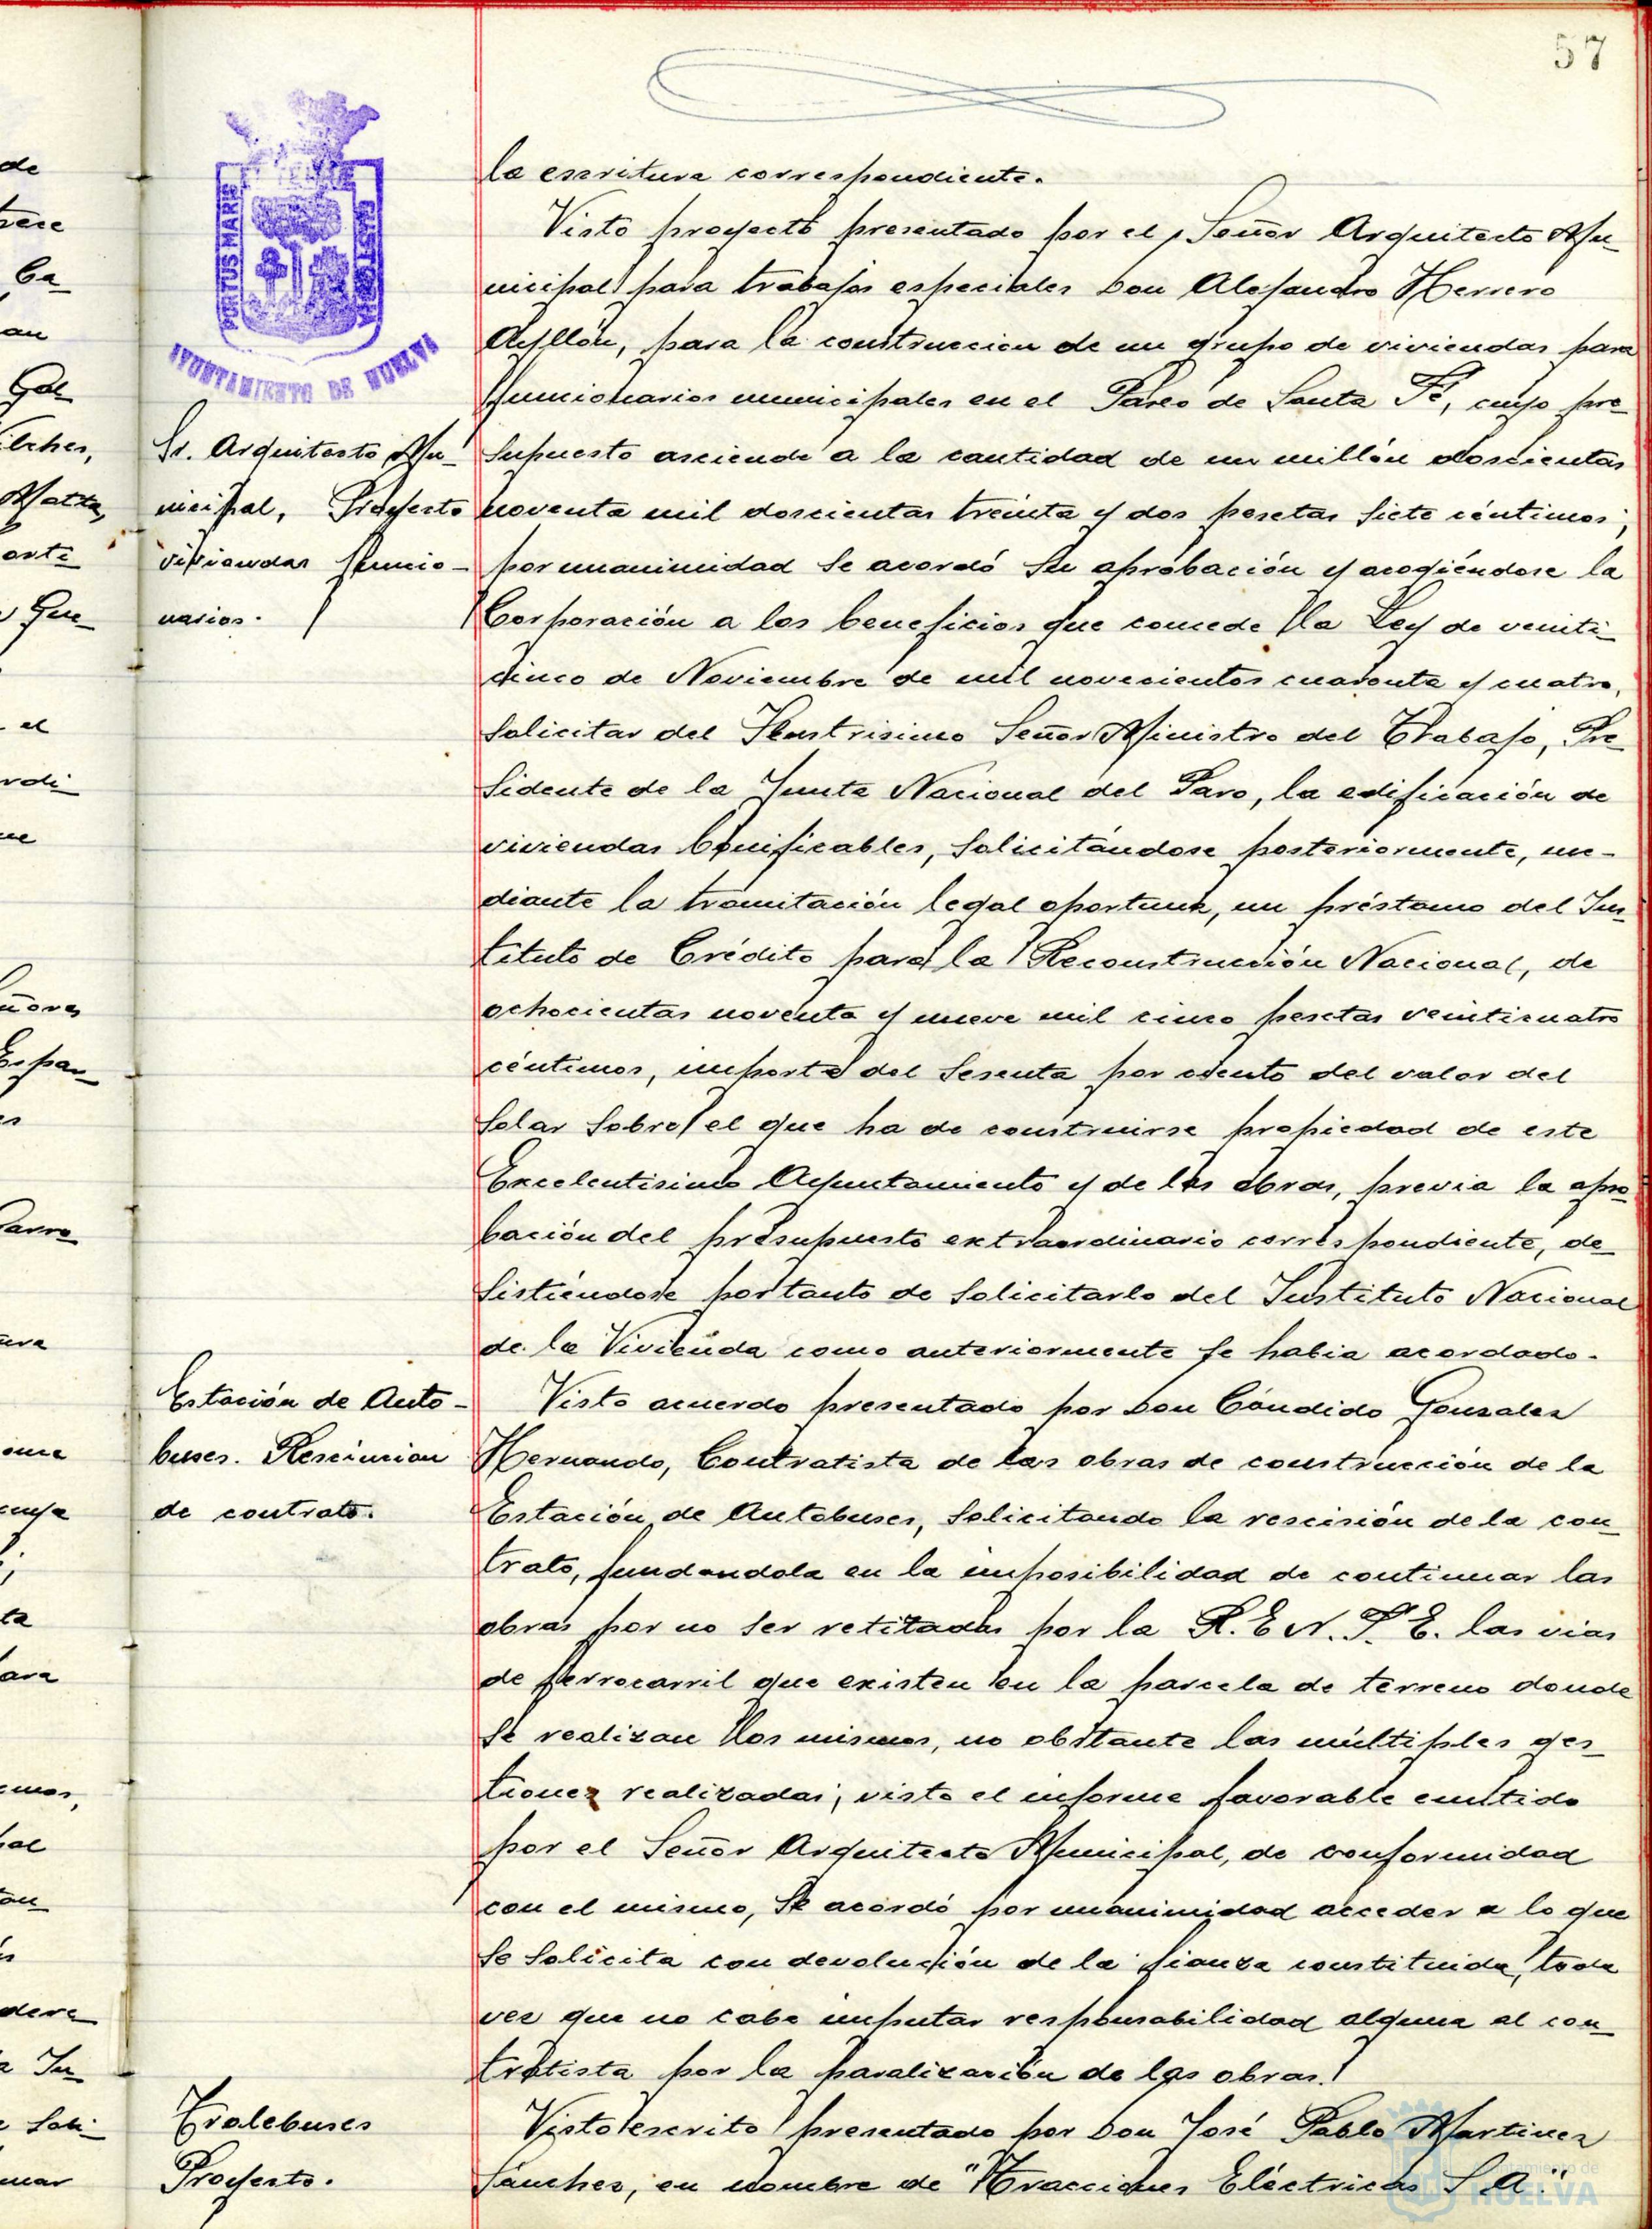 57
PORTUS MARIS
CUSTODIA
AYUNTAMIENTO DE HUELVA
la escritura correspondiente.
Visto proyecto presentado por el Señor Arquitecto Mu-
nicipal para trabajos especiales Don Alejandro Herrero
Ayllón, para la construccion de un grupo de viviendas para
funcionarios municipales en el Paseo de Santa Fé, cuyo pre-
supuesto asciende a la cantidad de un millón doscientas
noventa mil doscientas treinta y dos pesetas siete céntimos;
por unanimidad se acordó su aprobación y acogiéndose la
Corporación a los beneficios que concede la Ley de veinti-
cinco de Noviembre de mil novecientos cuarenta y cuatro,
solicitar del Ilustrisimo Señor Ministro del Trabajo, Pre-
sidente de la Junta Nacional del Paro, la edificación de
viviendas bonificables, solicitándose posteriormente, me-
diante la tramitación legal oportuna, un préstamo del Ins-
tituto de Crédito para la Reconstrucción Nacional, de
ochocientas noventa y nueve mil cinco pesetas veinticuatro
céntimos, importe del sesenta por ciento del valor del
solar sobre el que ha de construirse propiedad de este
Excelentisimo Ayuntamiento y de las obras, previa la apro-
bación del presupuesto extraordinario correspondiente, de-
sistiéndose portanto de solicitarlo del Instituto Nacional
de la Vivienda como anteriormente se habia acordado.
Visto acuerdo presentado por Don Cándido Gonzalez
Hernando, Contratista de las obras de construcción de la
Estación de Autobuses, solicitando la rescisión de la con-
trato, fundandola en la imposibilidad de continuar las
obras por no ser retitadas por la R.E.N.F.E. las vias
de ferrocarril que existen en la parcela de terreno donde
se realizan los mismos, no obstante las múltiples ges-
tiones realizadas; visto el informe favorable emitido
por el Señor Arquitecto Municipal, de conformidad
con el mismo, se acordó por unanimidad acceder a lo que
se solicita con devolución de la fianza constituida, toda
vez que no cabe imputar responsabilidad alguna al con-
tratista por la paralización de las obras.
Visto escrito presentado por Don José Pablo Martinez
Sanchez, en nombre de "Tracciones Eléctricas S.A."
Sr. Arquitecto Mu-
nicipal, Proyecto
viviendas funcio-
narios.
Estación de Auto-
buses. Rescincion
de contrato.
Trolebuses
Proyecto.
de
trece
Ca-
an
Gal-
ilches,
Matta,
ante
Gue-
el
rdi-
ñores
Espan-
Ayuntamiento de
HUELVA